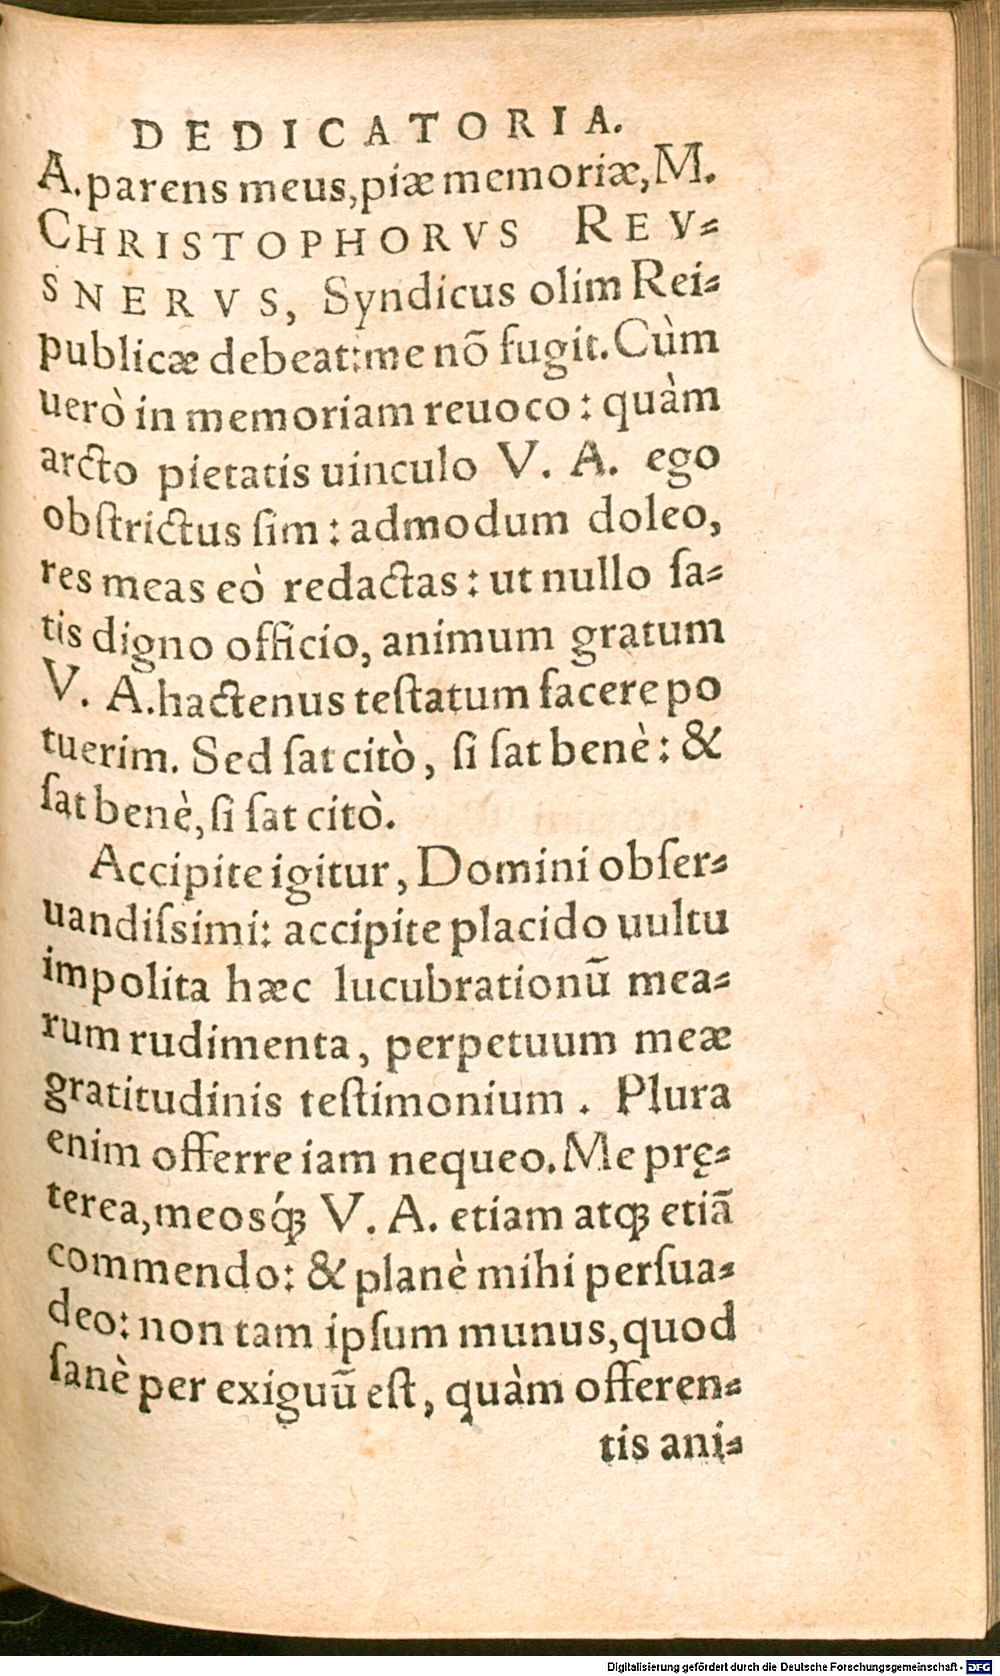 DEDICATORIA.
A. parens meus, piæ memoriæ, M.
CHRISTOPHORVS REV⸗
SNERVS, Syndicus olim Rei⸗
publicæ debeat: me nõ fugit. Cùm
uerò in memoriam reuoco: quàm
arcto pietatis uinculo V. A. ego
obſtrictus ſim: admodum doleo,
res meas eò redactas: ut nullo ſa⸗
tis digno officio, animum gratum
V. A. hactenus teſtatum facere po
tuerim. Sed ſat citò, ſi ſat benè: &
ſat benè, ſi ſat citò.
Accipite igitur, Domini obſer⸗
uandiſsimi: accipite placido uultu
impolita hæc lucubrationũ mea⸗
rum rudimenta, perpetuum meæ
gratitudinis teſtimonium. Plura
enim offerre iam nequeo. Me prę⸗
terea, meosq́ꝫ V. A. etiam atqꝫ etiã
commendo: & planè mihi perſua⸗
deo: non tam ipſum munus, quod
ſanè per exiguũ eſt, quàm offeren⸗
tis ani⸗
Digitalisierung gefördert durch die Deutsche Forschungsgemeinschaft - DFG